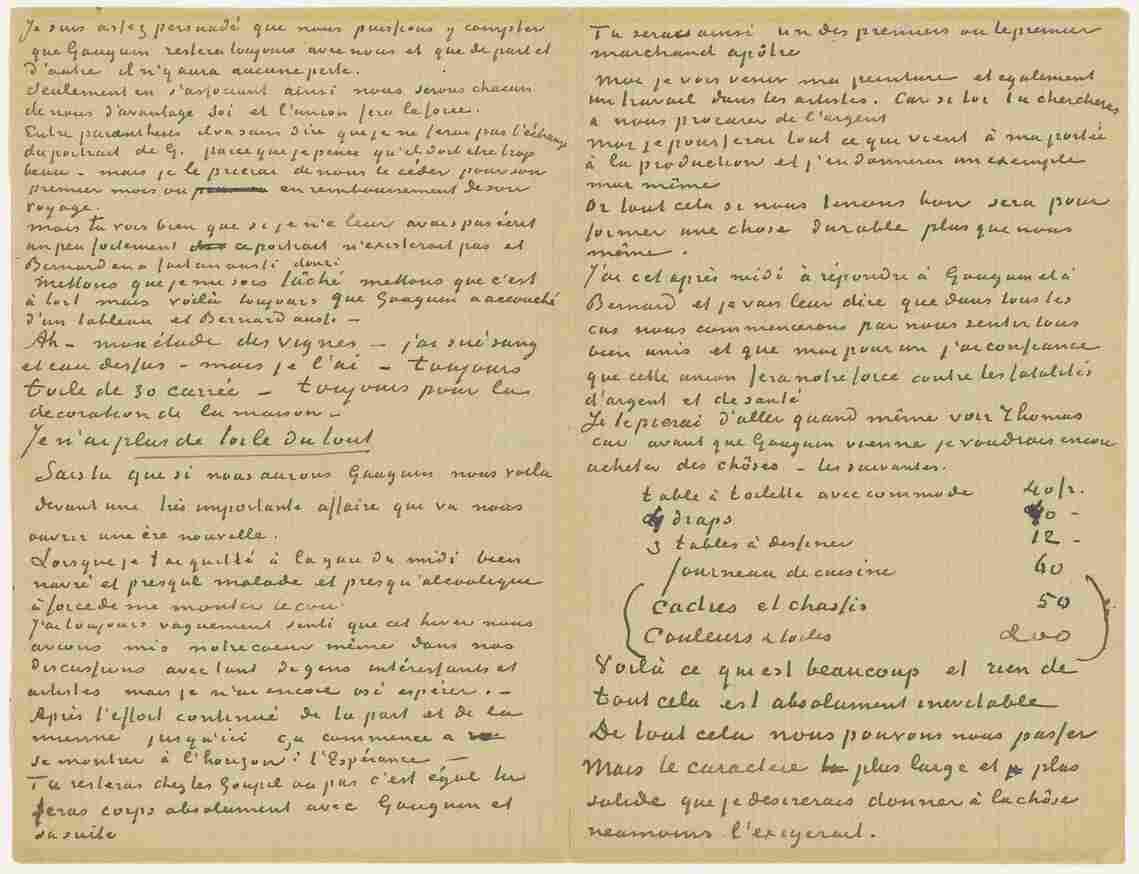 Je suis assez persuadé que nous puissions y compter
que Gauguin restera toujours avec nous et que de part et
d'autre il n'y aura aucune perte.
Seulement en s'associant ainsi nous serons chacun
de nous d'avantage soi et l'union fera la force.
Entre parentheses il va sans dire que je ne ferai pas l'échange
du portrait de G. parce que je pense qu'il doit etre trop
beau – mais je le prierai de nous le céder pour son
premier mois ou en remboursement de son
voyage.
mais tu vois bien que si je n'e leur avais pas écrit
un peu fortement ce portrait n'existerait pas et
Bernard en a fait un aussi donc
Mettons que je me sois fâché mettons que c'est
à tort mais voilà toujours que Gauguin a accouché
d'un tableau et Bernard aussi –
Ah – mon étude des vignes – j'ai sué sang
et eau dessus – mais je l'ai – toujours
toile de 30 carrée – toujours pour la
decoration de la maison –
Je n'ai plus de toile du tout
Sais tu que si nous aurons Gauguin nous voila
devant une très importante affaire que va nous
ouvrir une ère nouvelle.
Lorsque je t'ai quitté à la gau du midi bien
navré et presque malade et presqu'alcoolique
à force de me monter le cou.
J'ai toujours vaguement senti que cet hiver nous
avions mis notre coeur même dans nos
discussions avec tant de gens intéressants et
artistes mais je n'ai encore osé espérer. –
Après l'effort continué de ta part et de la
mienne jusqu'ici ça commence a
se montrer à l'horizon : l'Espérance –
Tu resteras chez les Goupil ou pas c'est égal tu
feras corps absolument avec Gauguin et
sa suite
Tu serais ainsi un des premiers ou le premier
marchand apôtre
Moi je vois venir ma peinture et egalement
un travail dans les artistes. Car si toi tu chercheras
a nous procurer de l'argent
moi je pousserai tout ce que vient à ma portée
à la production et j'en donnerai un exemple
moi même
Or tout cela si nous tenons bon sera pour
former une chose durable plus que nous
même.
J'ai cet après midi à répondre à Gauguin et à
Bernard et je vais leur dire que dans tous les
cas nous commencerons par nous sentir tous
bien unis et que moi pour un j'ai confiance
que cette union fera notre force contre les fatalités
d'argent et de santé
Je te prierai d'aller quand même voir Thomas
car avant que Gauguin vienne je voudrais encore
acheter des chôses – les suivantes.
table à toilette avec commode 40 fr.
4 draps 40 –
3 tables à dessiner 12 –
fourneau de cuisine 60
Cadres et chassis 50
Couleurs & toiles 200
Voilà ce qui est beaucoup et rien de
tout cela est absolument inevitable
De tout cela nous pouvons nous passer
Mais le caractère plus large et plus
solide que je desirerais donner à la chôse
neamoins l'exigerait.